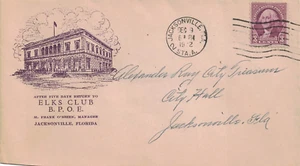 JACKSONVILLE, FLA.
DEC 9
AFTER FIVE DAYS RETURN TO
ELKS CLUB
B. P. O. E.
MANAGER
JACKSONVILLE, FLORIDA
Alexander Ray City Treasurer
City Hall
Jacksonville. Fla